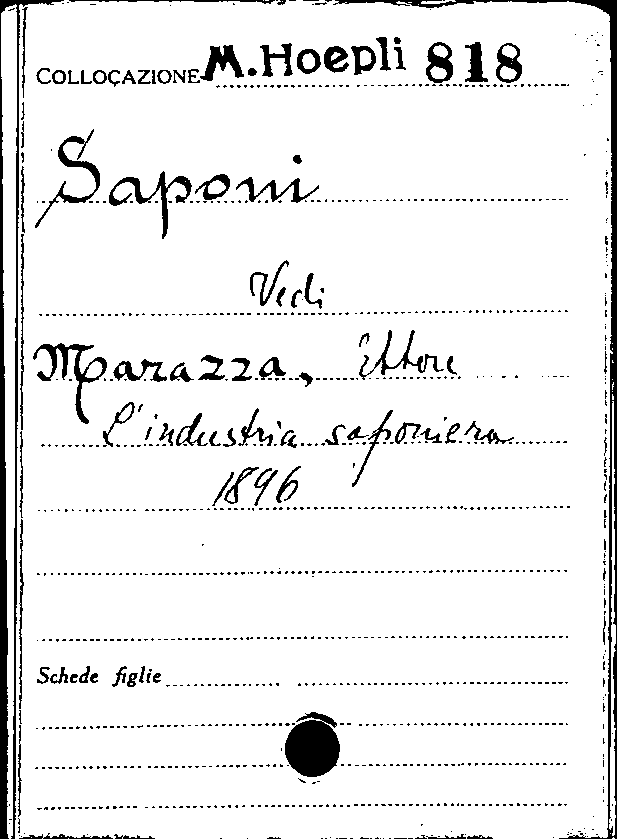 COLLOCAZIONE M. Hoepli 818
Saponi
Vedi
Marazza, Ettore
L'industria saponiera
1896
Schede figlie